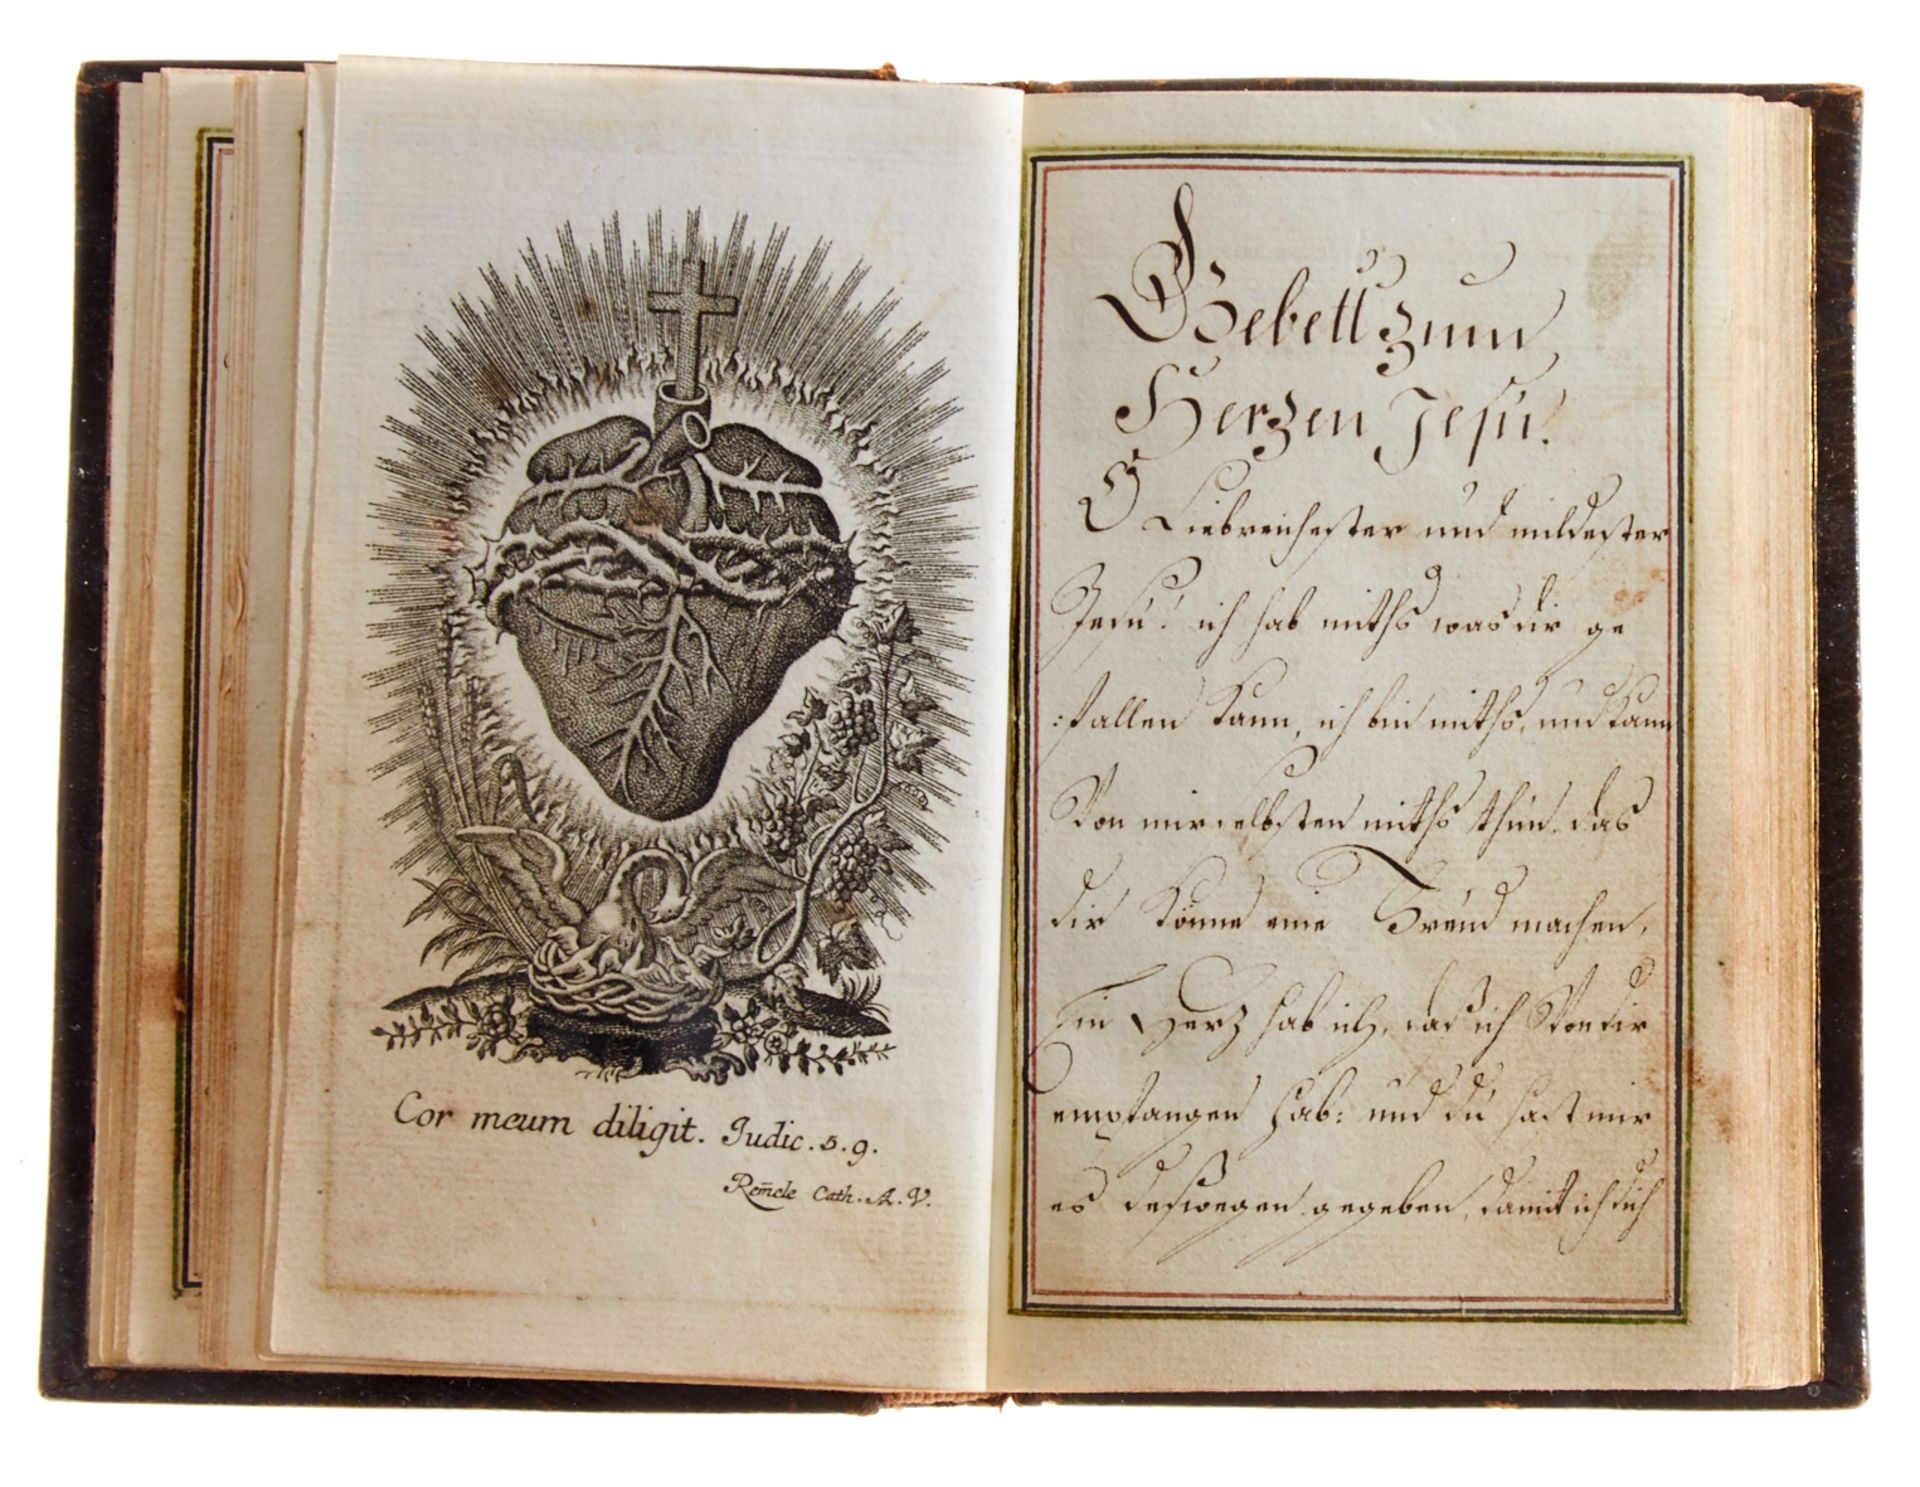 Cor meum diligit. Judic. 5. 9.
Rem̄ele Cath. A. V.
Gebett zum
Herzen Jesu.
O Liebreichester und mildester
Jesu! ich hab nichts was dir ge
:fallen kann, ich bin nichts, und kann
Von mir selbsten nichts thun. das
dir könne eine Freud machen,
Ein Herz hab ich, das ich Von dir
empfangen hab: und du hast mir
es deswegen gegeben, damit ich dich